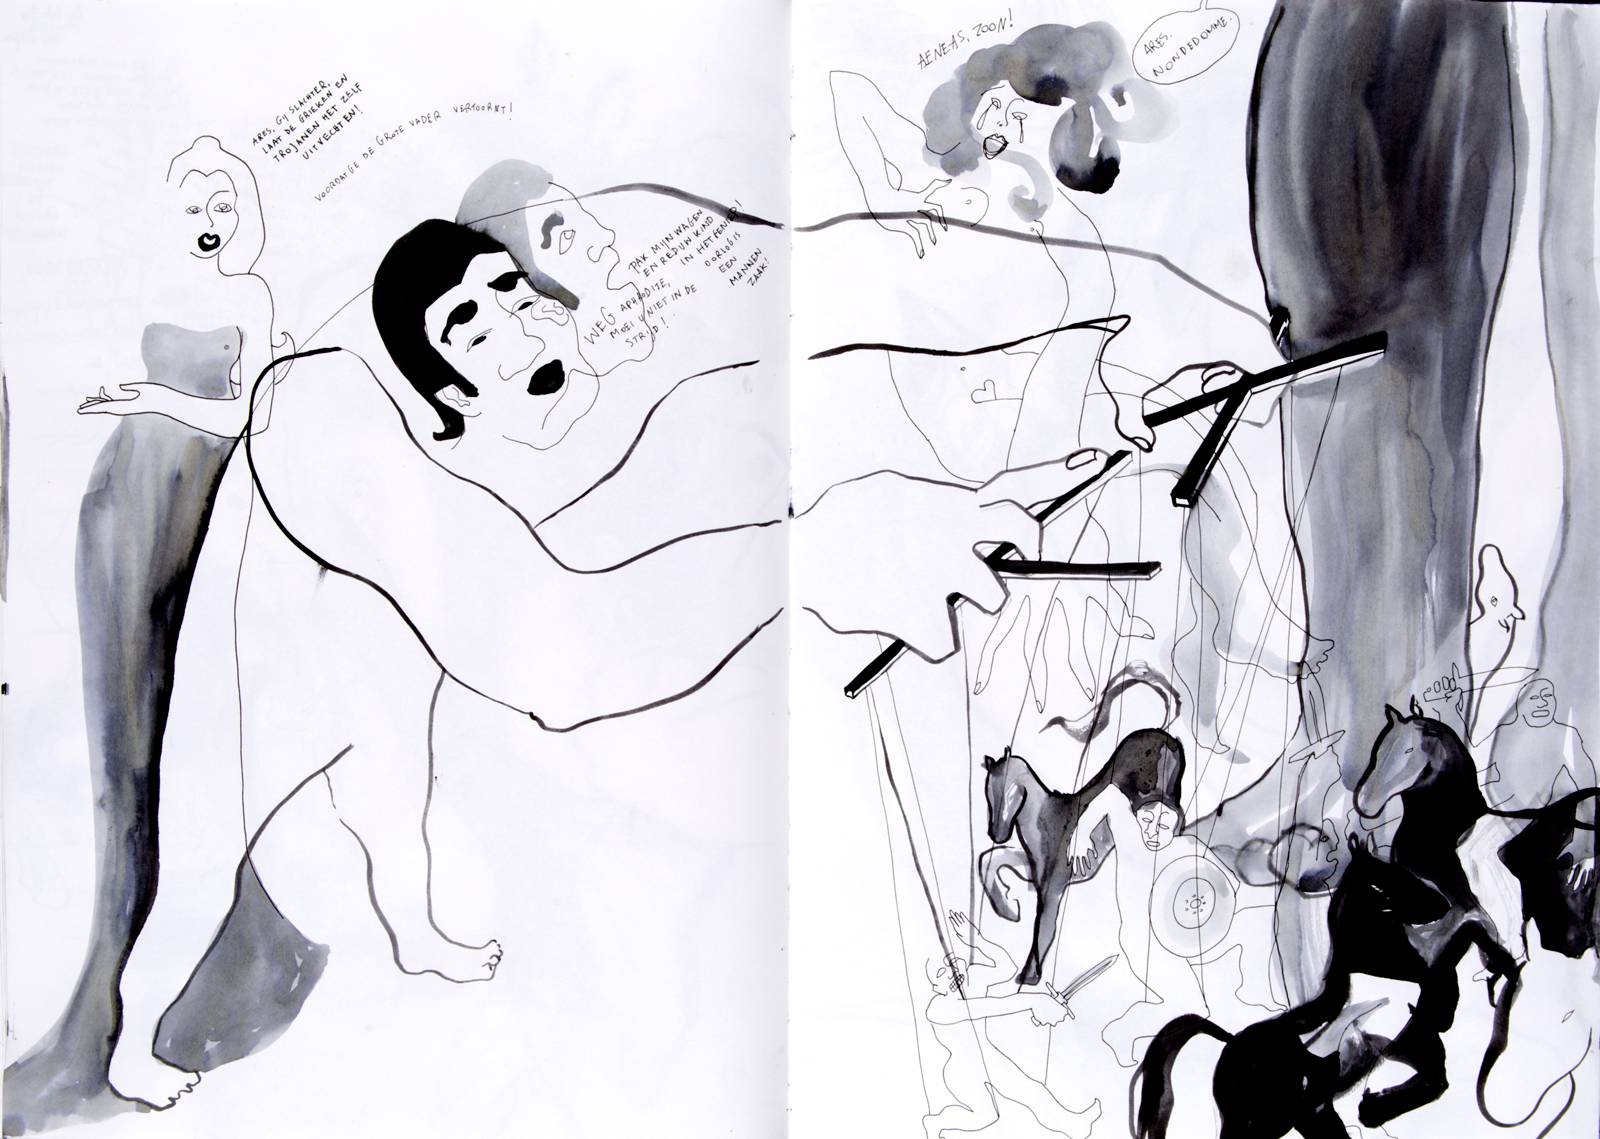 ARES, GIJ SLACHTER,
LAAT DE GRIEKEN EN
TROJANEN HET ZELF
UITVECHTEN!
VOORDATGE DE GROTE VADER VERTOORNT!
PAK MIJN WAGEN
EN RED UW KIND
IN HET GENIEP!
WEG APHRODITE,
MOEI U NIET IN DE
STRIJD!
OORLOG IS
EEN
MANNEN
ZAAK!
AENEAS, ZOON!
ARES.
NONDEDOMME.